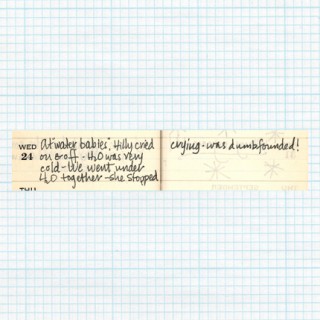 WED
24
At water babies, Hilly cried
on & off - H2O was very
cold - We went under
H2O together - she stopped
crying - was dumbfounded!